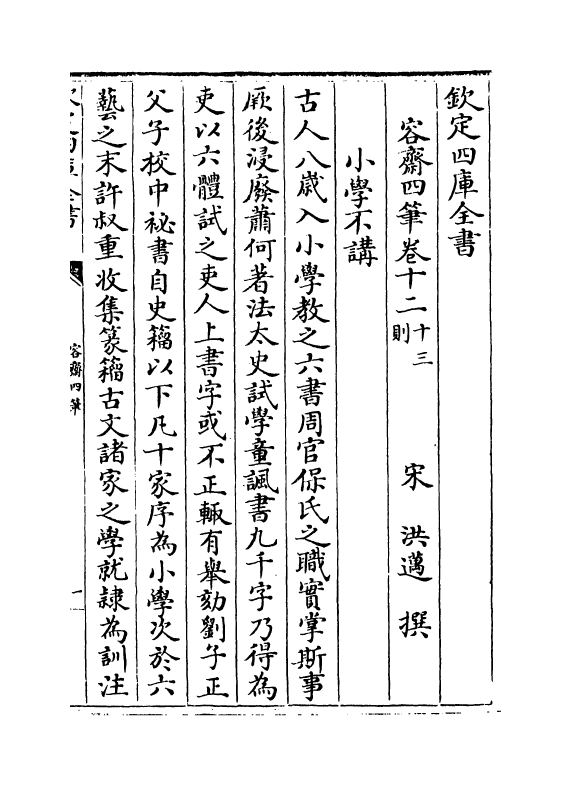 欽定四庫全書
容齋四筆卷十二 十三則
宋 洪邁 撰
小學不講
古人八歲入小學教之六書周官保氏之職實掌斯事
厥後浸廢蕭何著法太史試學童諷書九千字乃得為
吏以六體試之吏人上書字或不正輙有舉劾劉子正
父子校中祕書自史籀以下凡十家序為小學次於六
藝之末許叔重收集篆籀古文諸家之學就隷為訓注
容齋四筆
一